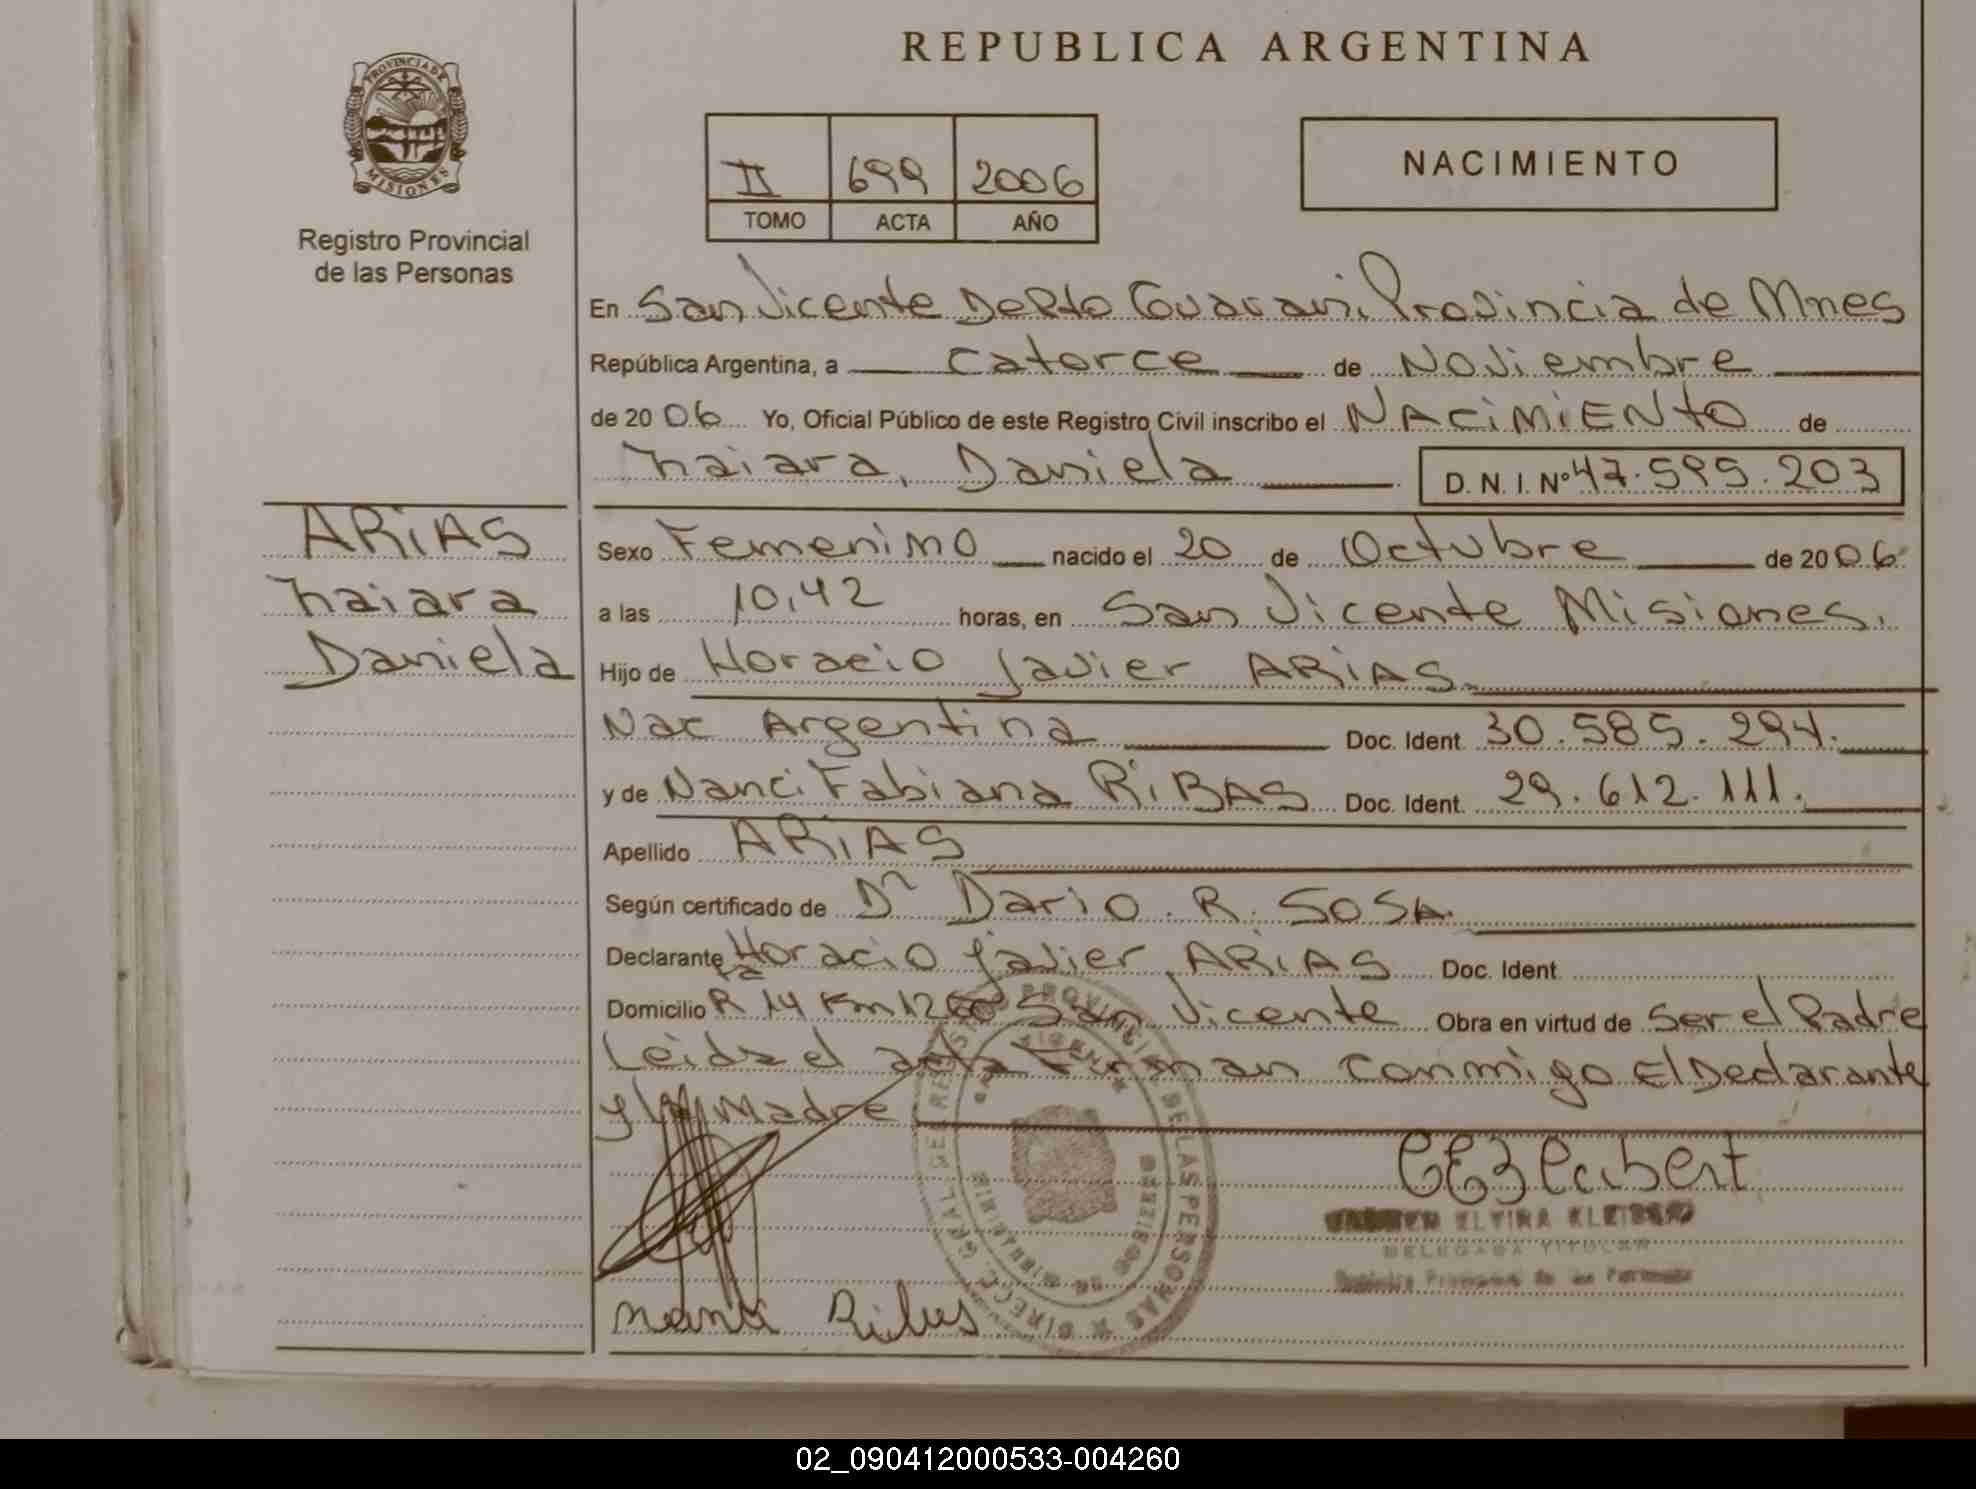 REPUBLICA ARGENTINA
PROVINCIA DE
MISIONES
Registro Provincial
de las Personas
II 699 2006
TOMO ACTA AÑO
NACIMIENTO
En San Vicente Depto Guarani, Provincia de Mnes
República Argentina, a catorce de Noviembre
de 2006 Yo, Oficial Público de este Registro Civil inscribo el NACiMiENto de
Naiara, Daniela D. N. I. Nº 47.595.203
ARiAS
Naiara
Daniela
Sexo Femenino nacido el 20 de Octubre de 2006
a las 10,42 horas, en San Vicente Misiones.
Hijo de Horacio Javier ARiAS
Nac Argentina Doc. Ident. 30.585.294.
y de Nanci Fabiana RiBAS Doc. Ident. 29.612.111.
Apellido ARiAS
Según certificado de Dr Dario. R. SOSA
Declarante Horacio Javier ARiAS Doc. Ident.
Domicilio R 14 Km 1260 San Vicente Obra en virtud de Ser el Padre
Leida el acta Firman conmigo El Declarante
y la Madre
ELVIRA
DELEGADA TITULAR
Registro Provincial de las Personas
Ribas
02_090412000533-004260